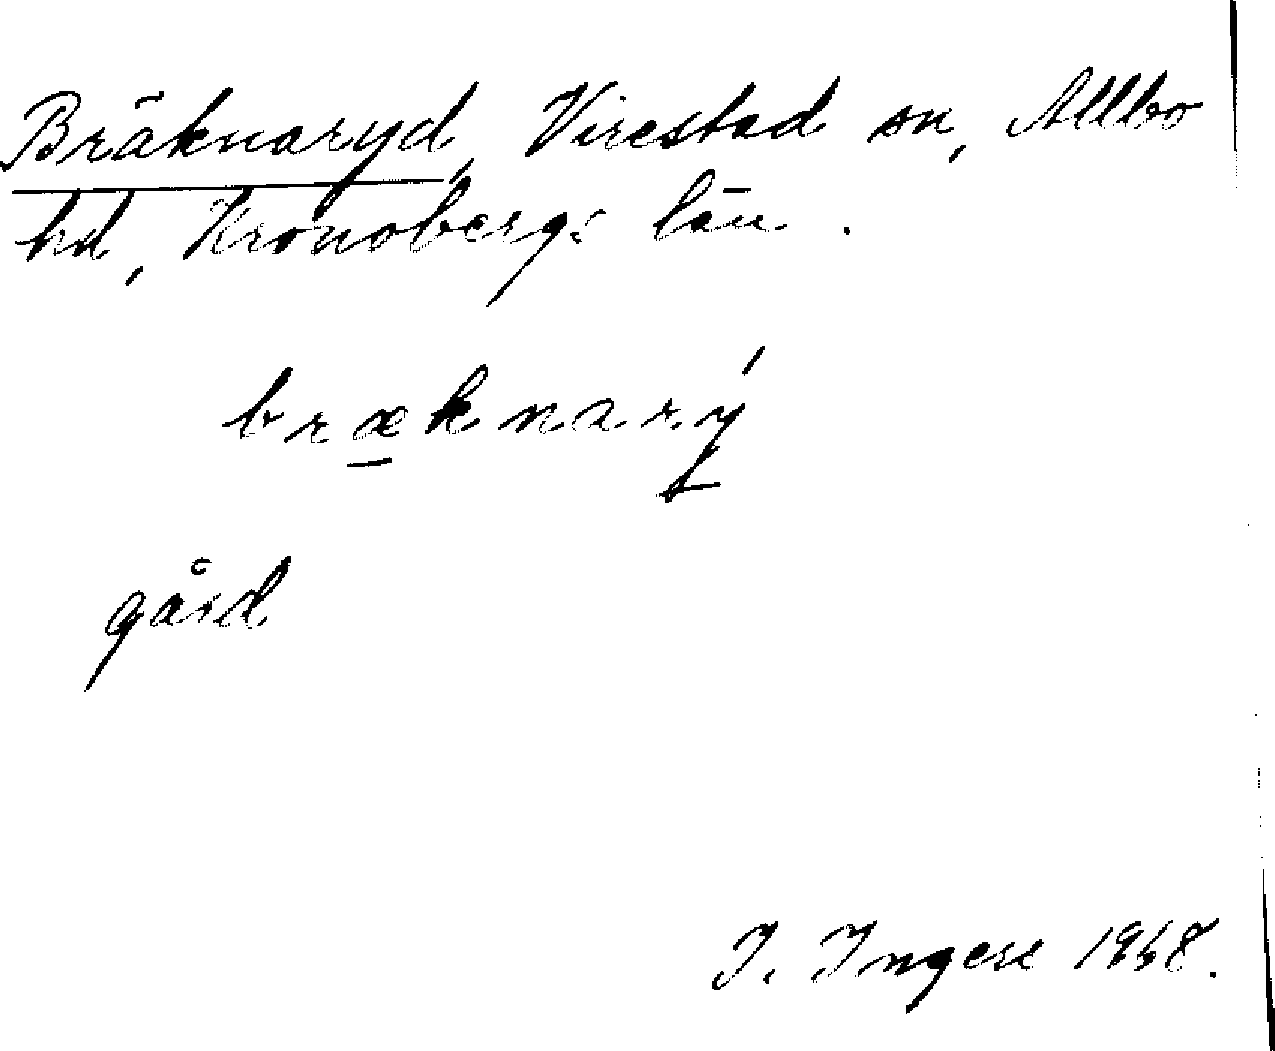 Bräknaryd, Virestad sn, Allbo
hd, Kronobergs län.
bræknarý
gård
I. Ingers 1968.